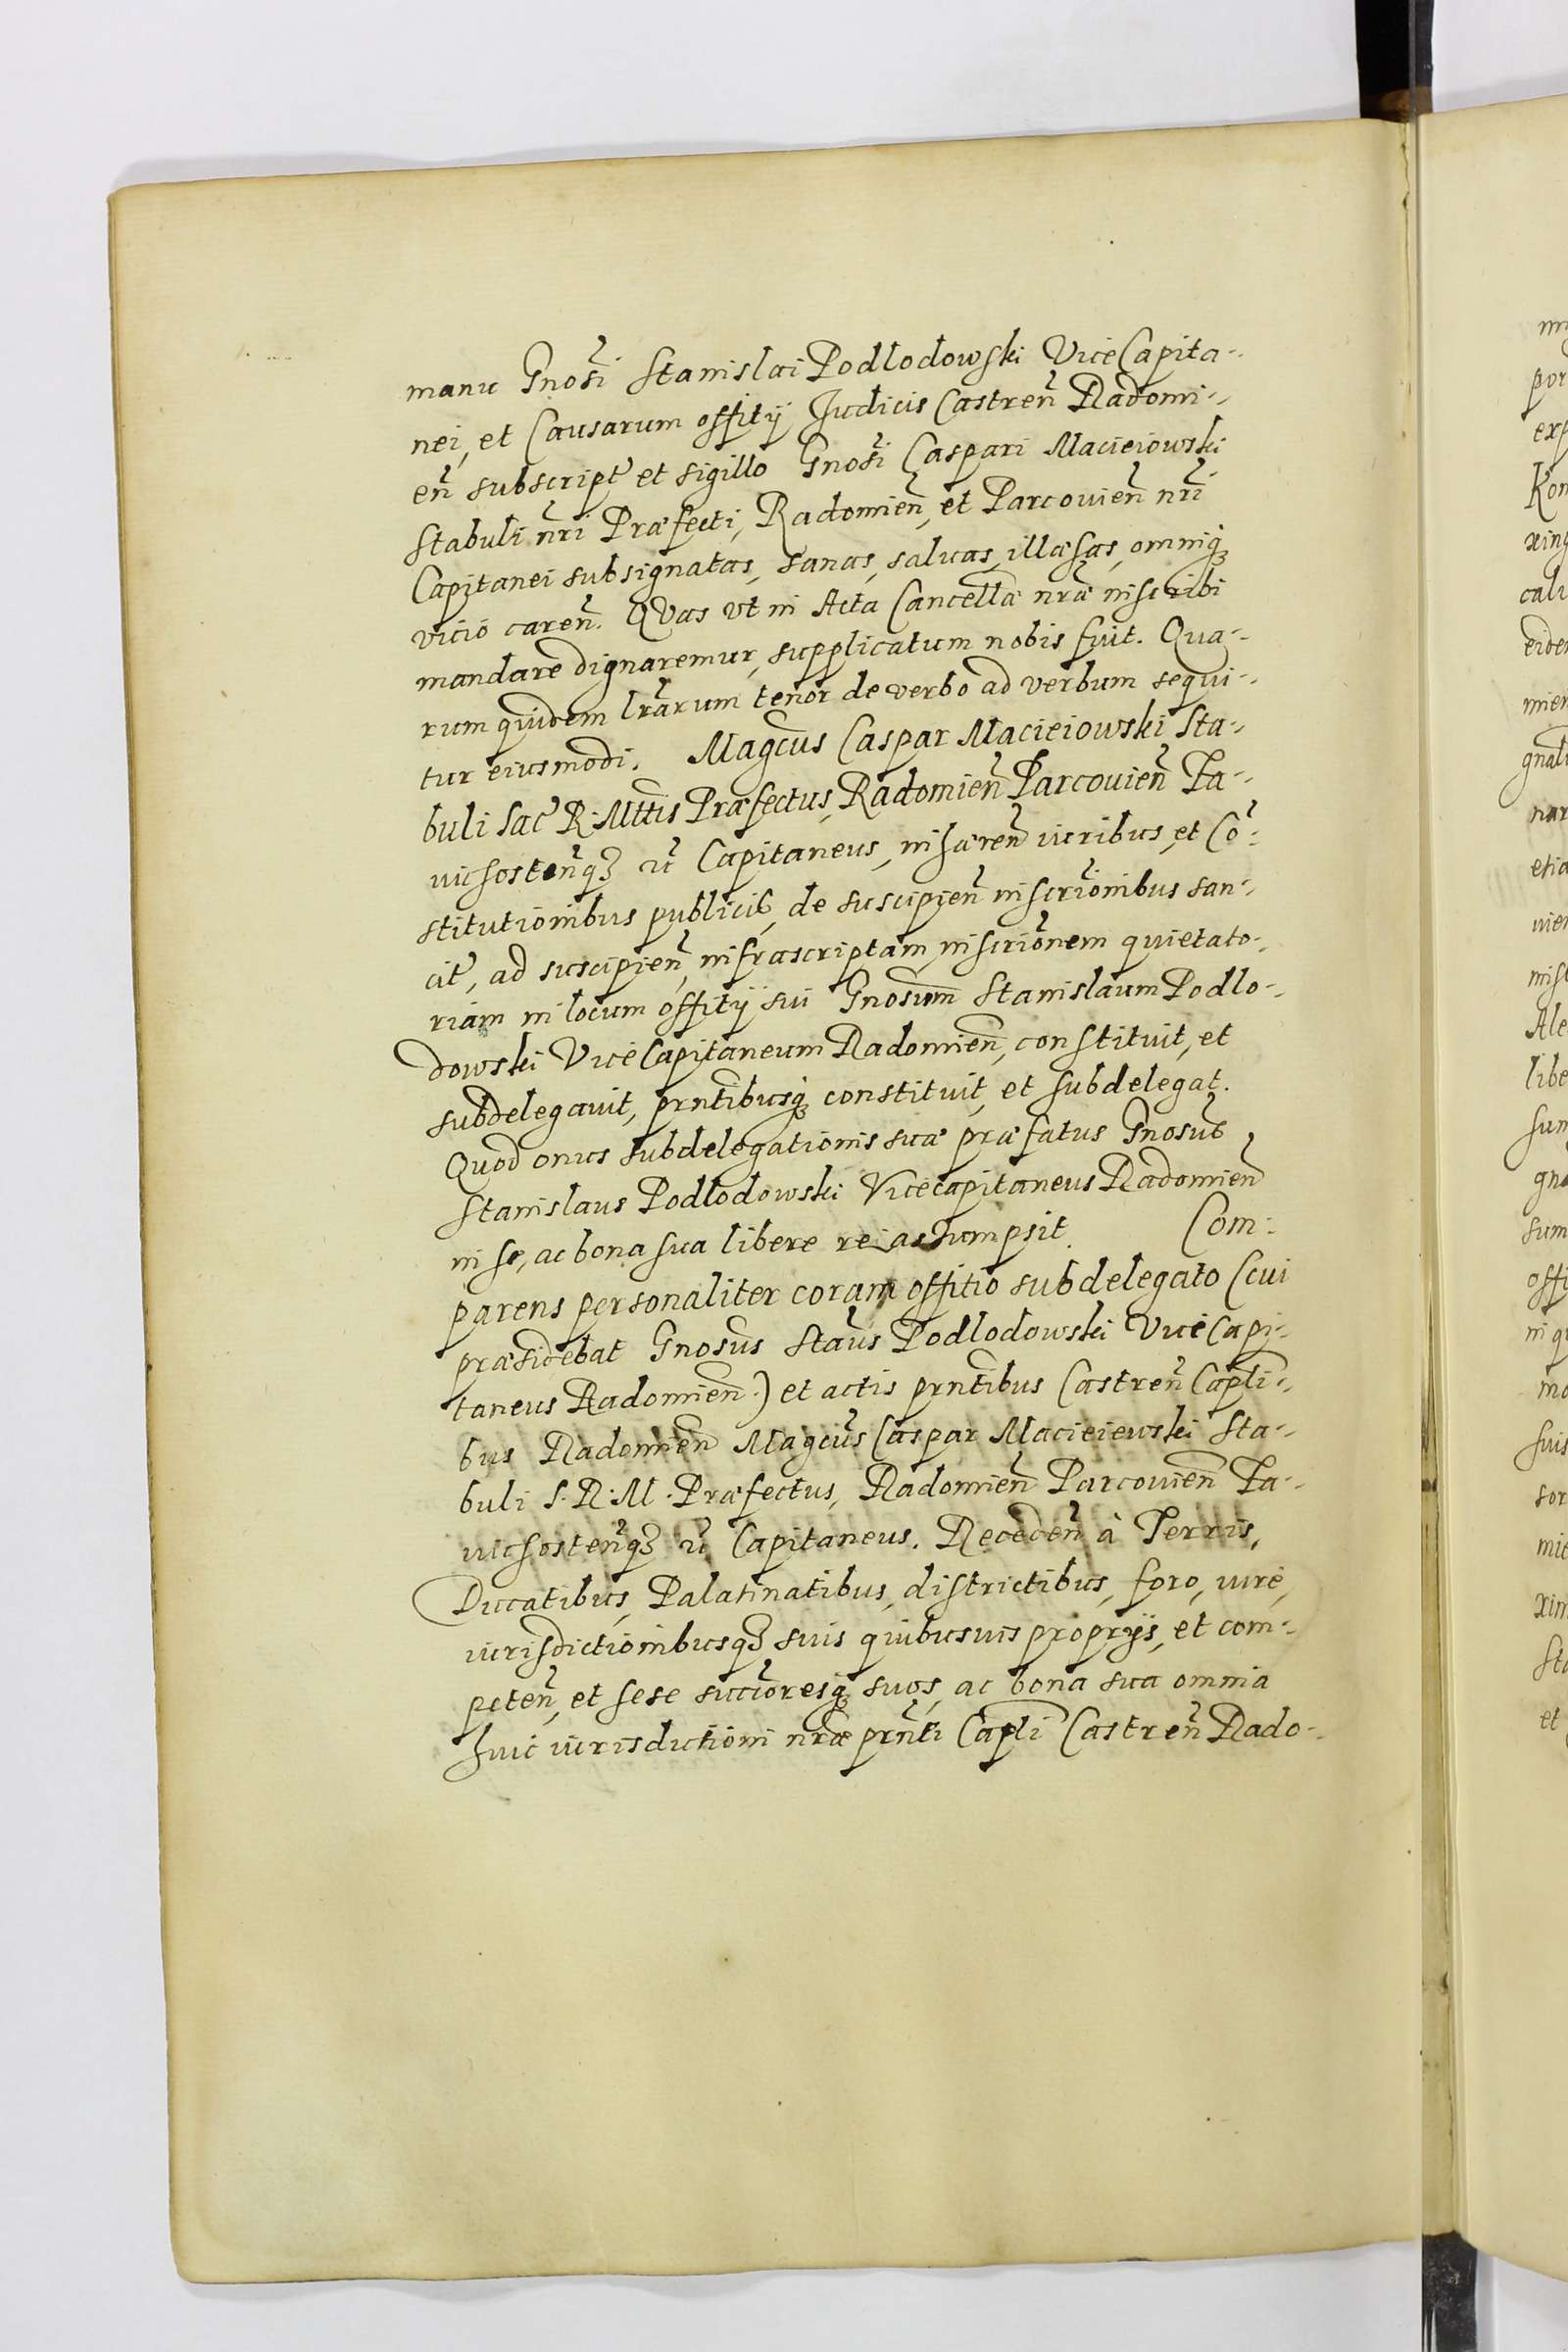 manu Gnosi Stanislai Podlodowski ViceCapita-
nei, et Causarum offitÿ Judicis Castren̄ Radomi-
en̄ subscript et sigillo Gnosi Caspari Macieiowski
Stabuli n̄ri Præfecti, Radomien̄, et Parcovien̄ nr̄i
Capitanei subsignatas, sanas, saluas, illæsas, omniqȝ
vicio caren̄. QVas vt in Acta Cancellæ nr̄æ inscribi
mandare dignaremur, supplicatum nobis fuit. Qua-
rum quidem lr̄arum tenor de verbo ad verbum sequi-
tur eiusmodi. Magcus Caspar Macieiowski Sta-
buli Sac R. Mttis Præfectus, Radomien̄ Parcouien̄ Za-
uichosten̄qȝ &c Capitaneus, inhæren̄ iuribus, et Cō-
stitutionibus publicis, de suscipien̄ inscrionibus san-
cit, ad suscipien̄, infrascriptam inscrionem quietato-
riam in locum offitÿ sui Gnosum Stanislaum Podlo-
dowski ViceCapitaneum Radomien̄, constituit, et
subdelegauit, prn̄tibusqȝ constituit, et subdelegat.
Quod onus subdelegationis suæ præfatus Gnosus
Stanislaus Podlodowski Vicecapitaneus Radomien̄
in se, ac bona sua libere reiassumpsit. Com-
parens personaliter coram offitio subdelegato (cui
præsidebat Gnosus Staus Podlodowski ViceCapi-
taneus Radomien̄) et actis prn̄tibus Castren̄ Capli-
bus Radomien̄ Magcus Caspar Macieiewski Sta-
buli S. R. M. Præfectus, Radomien̄ Parcouien̄ Za-
uichosten̄qȝ &c Capitaneus. Receden̄ à Terris,
Ducatibus, Palatinatibus, districtibus, foro, iure,
iurisdictionibusqȝ suis quibusuis proprÿs, et com-
peten̄, et sese succioresqȝ suos, ac bona sua omnia
huic iurisdictioni nr̄æ prn̄ti Capli Castren̄ Rado-